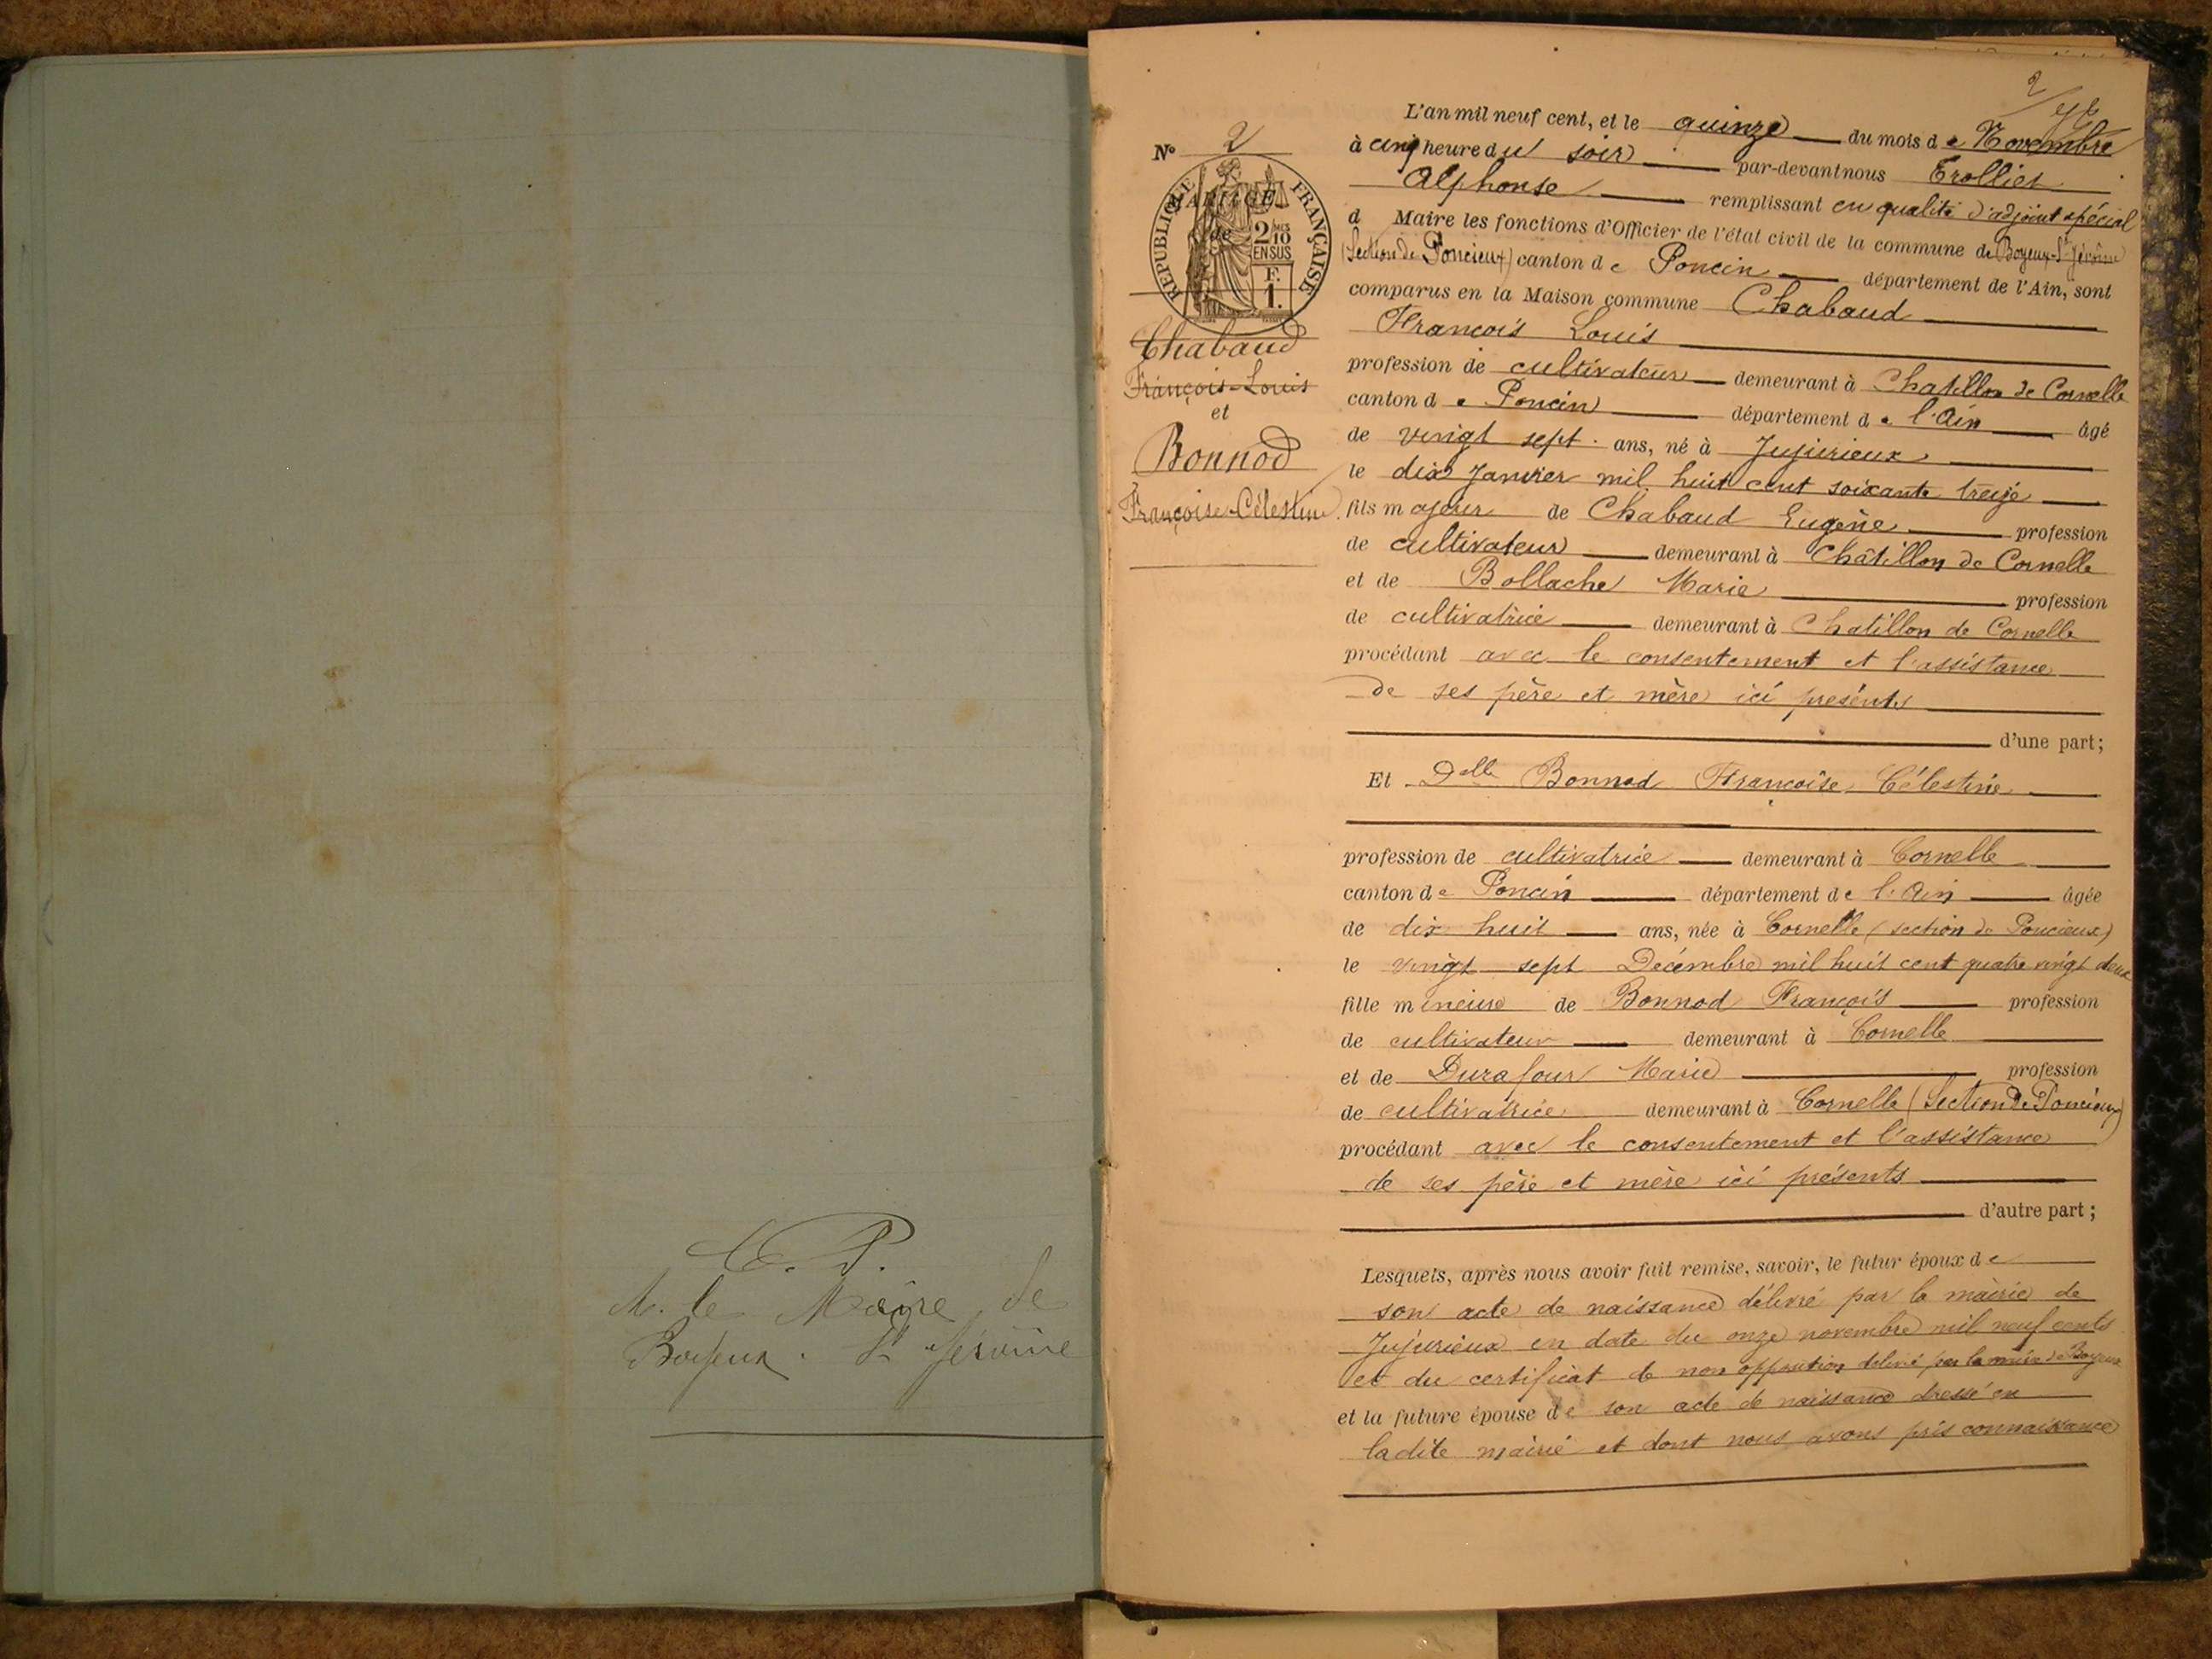 C. P.
M. le Maire de
Boyeux. St Jérôme
2
L'an mil neuf cent, et le quinze du mois de Novembre
à cinq heure du soir par-devant nous Trolliet
Alphonse remplissant en qualité d'adjoint spécial
d Maire les fonctions d'Officier de l'état civil de la commune de Boyeux-St Jérôme
(Section de Poncieux) canton de Poncin département de l'Ain, sont
comparus en la Maison commune Chabaud
François Louis
profession de cultivateur demeurant à Chatillon de Cornelle
canton de Poncin département de l'Ain âgé
de vingt sept ans, né à Jujurieux
le dix Janvier mil huit cent soixante treize
fils majeur de Chabaud Eugène profession
de cultivateur demeurant à Châtillon de Cornelle
et de Bollache Marie profession
de cultivatrice demeurant à Chatillon de Cornelle
procédant avec le consentement et l'assistance
de ses père et mère ici présents
d'une part;
Et Delle Bonnod Françoise Célestine
profession de cultivatrice demeurant à Cornelle
canton de Poncin département de l'Ain âgée
de dix huit ans, née à Cornelle (section de Poncieux)
le vingt sept Décembre mil huit cent quatre vingt deux
fille mineure de Bonnod François profession
de cultivateur demeurant à Cornelle
et de Durafour Marie profession
de cultivatrice demeurant à Cornelle (Section de Poncieux)
procédant avec le consentement et l'assistance
de ses père et mère ici présents
d'autre part;
Lesquels, après nous avoir fait remise, savoir, le futur époux de
son acte de naissance délivré par la mairie de
Jujurieux en date du onze novembre mil neuf cents
et du certificat de non opposition délivré par la mairie de Boyeux
et la future épouse de son acte de naissance dressé en
la dite mairie et dont nous avons pris connaissance
No 2
RÉPUBLIQUE FRANÇAISE
MARIAGE
de
2 DMES
10
EN SUS
F.
1.
Chabaud
François-Louis
et
Bonnod
Françoise-Célestine.